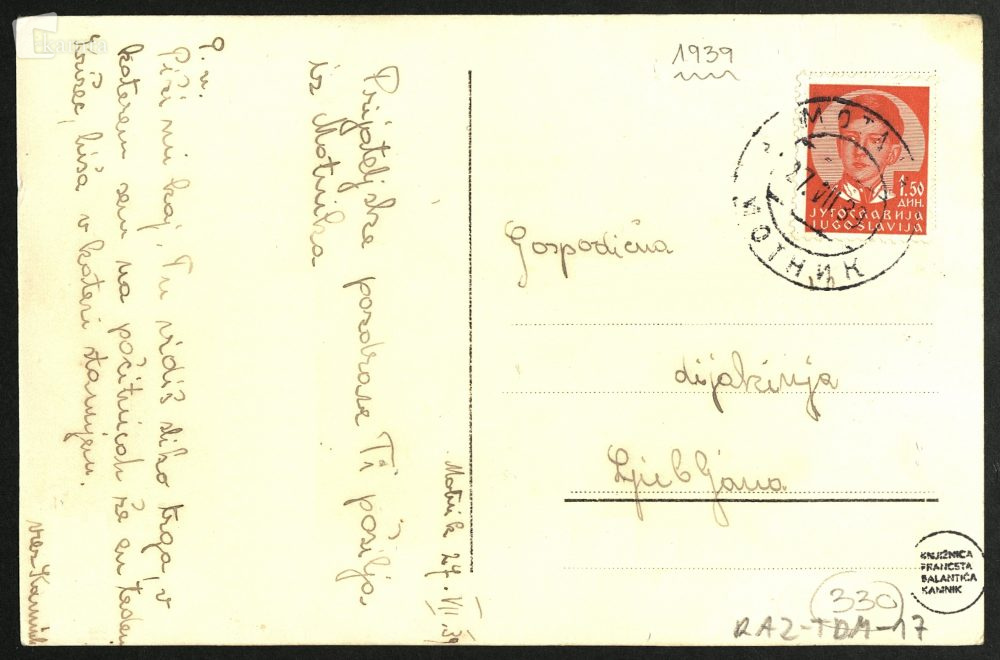 kamra
P. n.
Piši mi kaj. Tu vidiš sliko trga, v
katerem sem na počitnicah že en teden.
hiša v kateri stanujem.
Prijateljske pozdrave Ti pošilja,
iz Motnika
Motnik 27. VII. 39
1939
MOTNIK
27. VII 39
МОТНИК
1.50
ДИН.
ЈУГОСЛАВИЈА
JUGOSLAVIJA
Gospodična
dijakinja
Ljubljana
KNJIŽNICA
FRANCETA
BALANTIČA
KAMNIK
330
RAZ-TDM-17